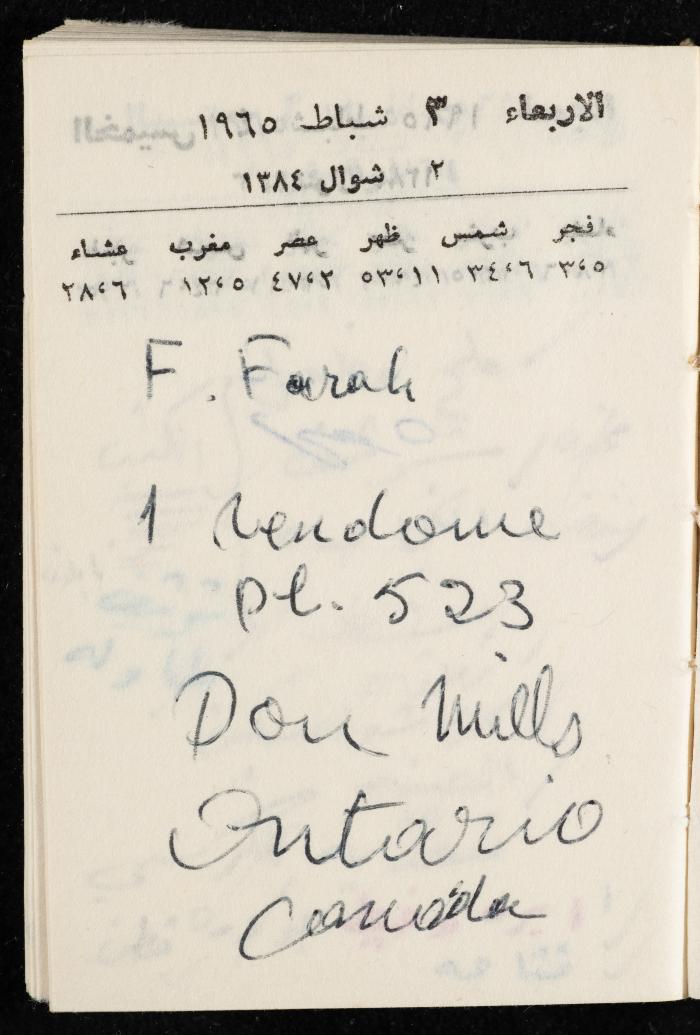 الاربعاء ٣ شباط ١٩٦٥
٢ شوال ١٣٨٤
فجر شمس ظهر عصر مغرب عشاء
٣،٥ ٣٤،٦ ٥٣،١١ ٤٧،٢ ١٢،٥ ٢٨،٦
F. Farah
1 Vendome
Pl. 523
Don Mills
Ontario
Canada